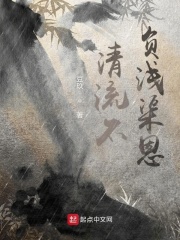 清流不
负浅渠恩
著
起点中文网